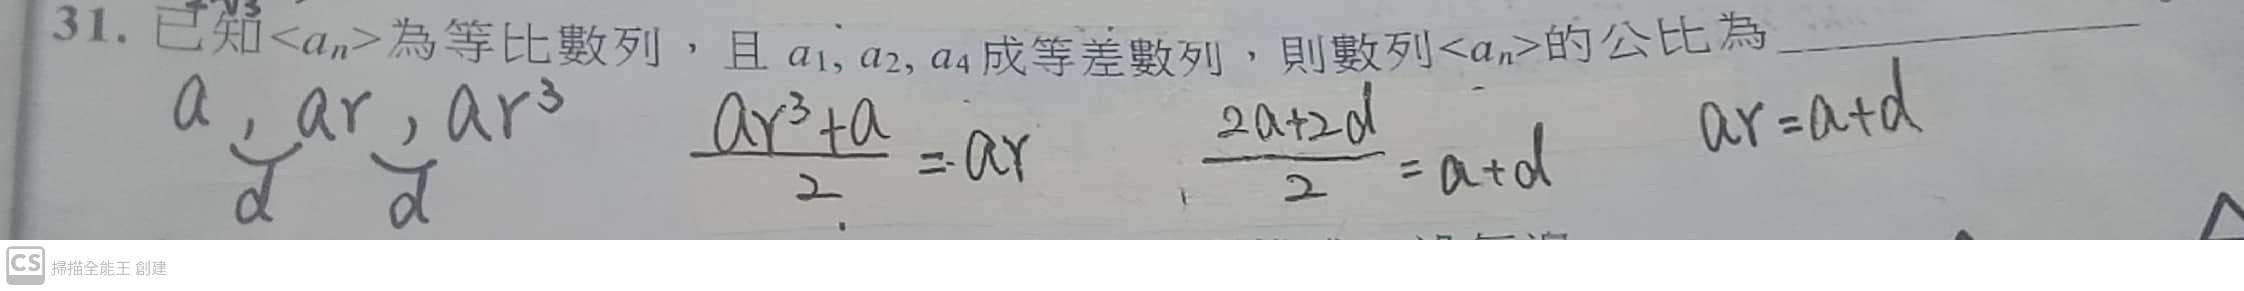 31. 已知<aₙ>為等比數列，且 a₁, a₂, a₄成等差數列，則數列<aₙ>的公比為
a, ar, ar³
d d
(ar³+a)/2 = ar
(2a+2d)/2 = a+d
ar=a+d
CS 掃描全能王 創建